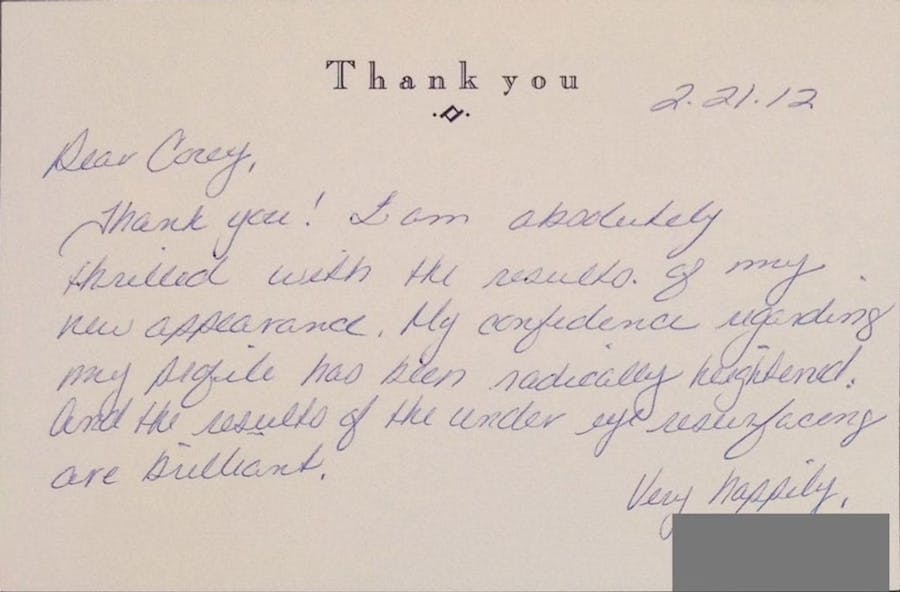 Thank you
2.21.12
Dear Corey,
Thank you! I am absolutely
thrilled with the results of my
new appearance. My confidence regarding
my profile has been radically heightened.
And the results of the under eye resurfacing
are brilliant.
Very happily,